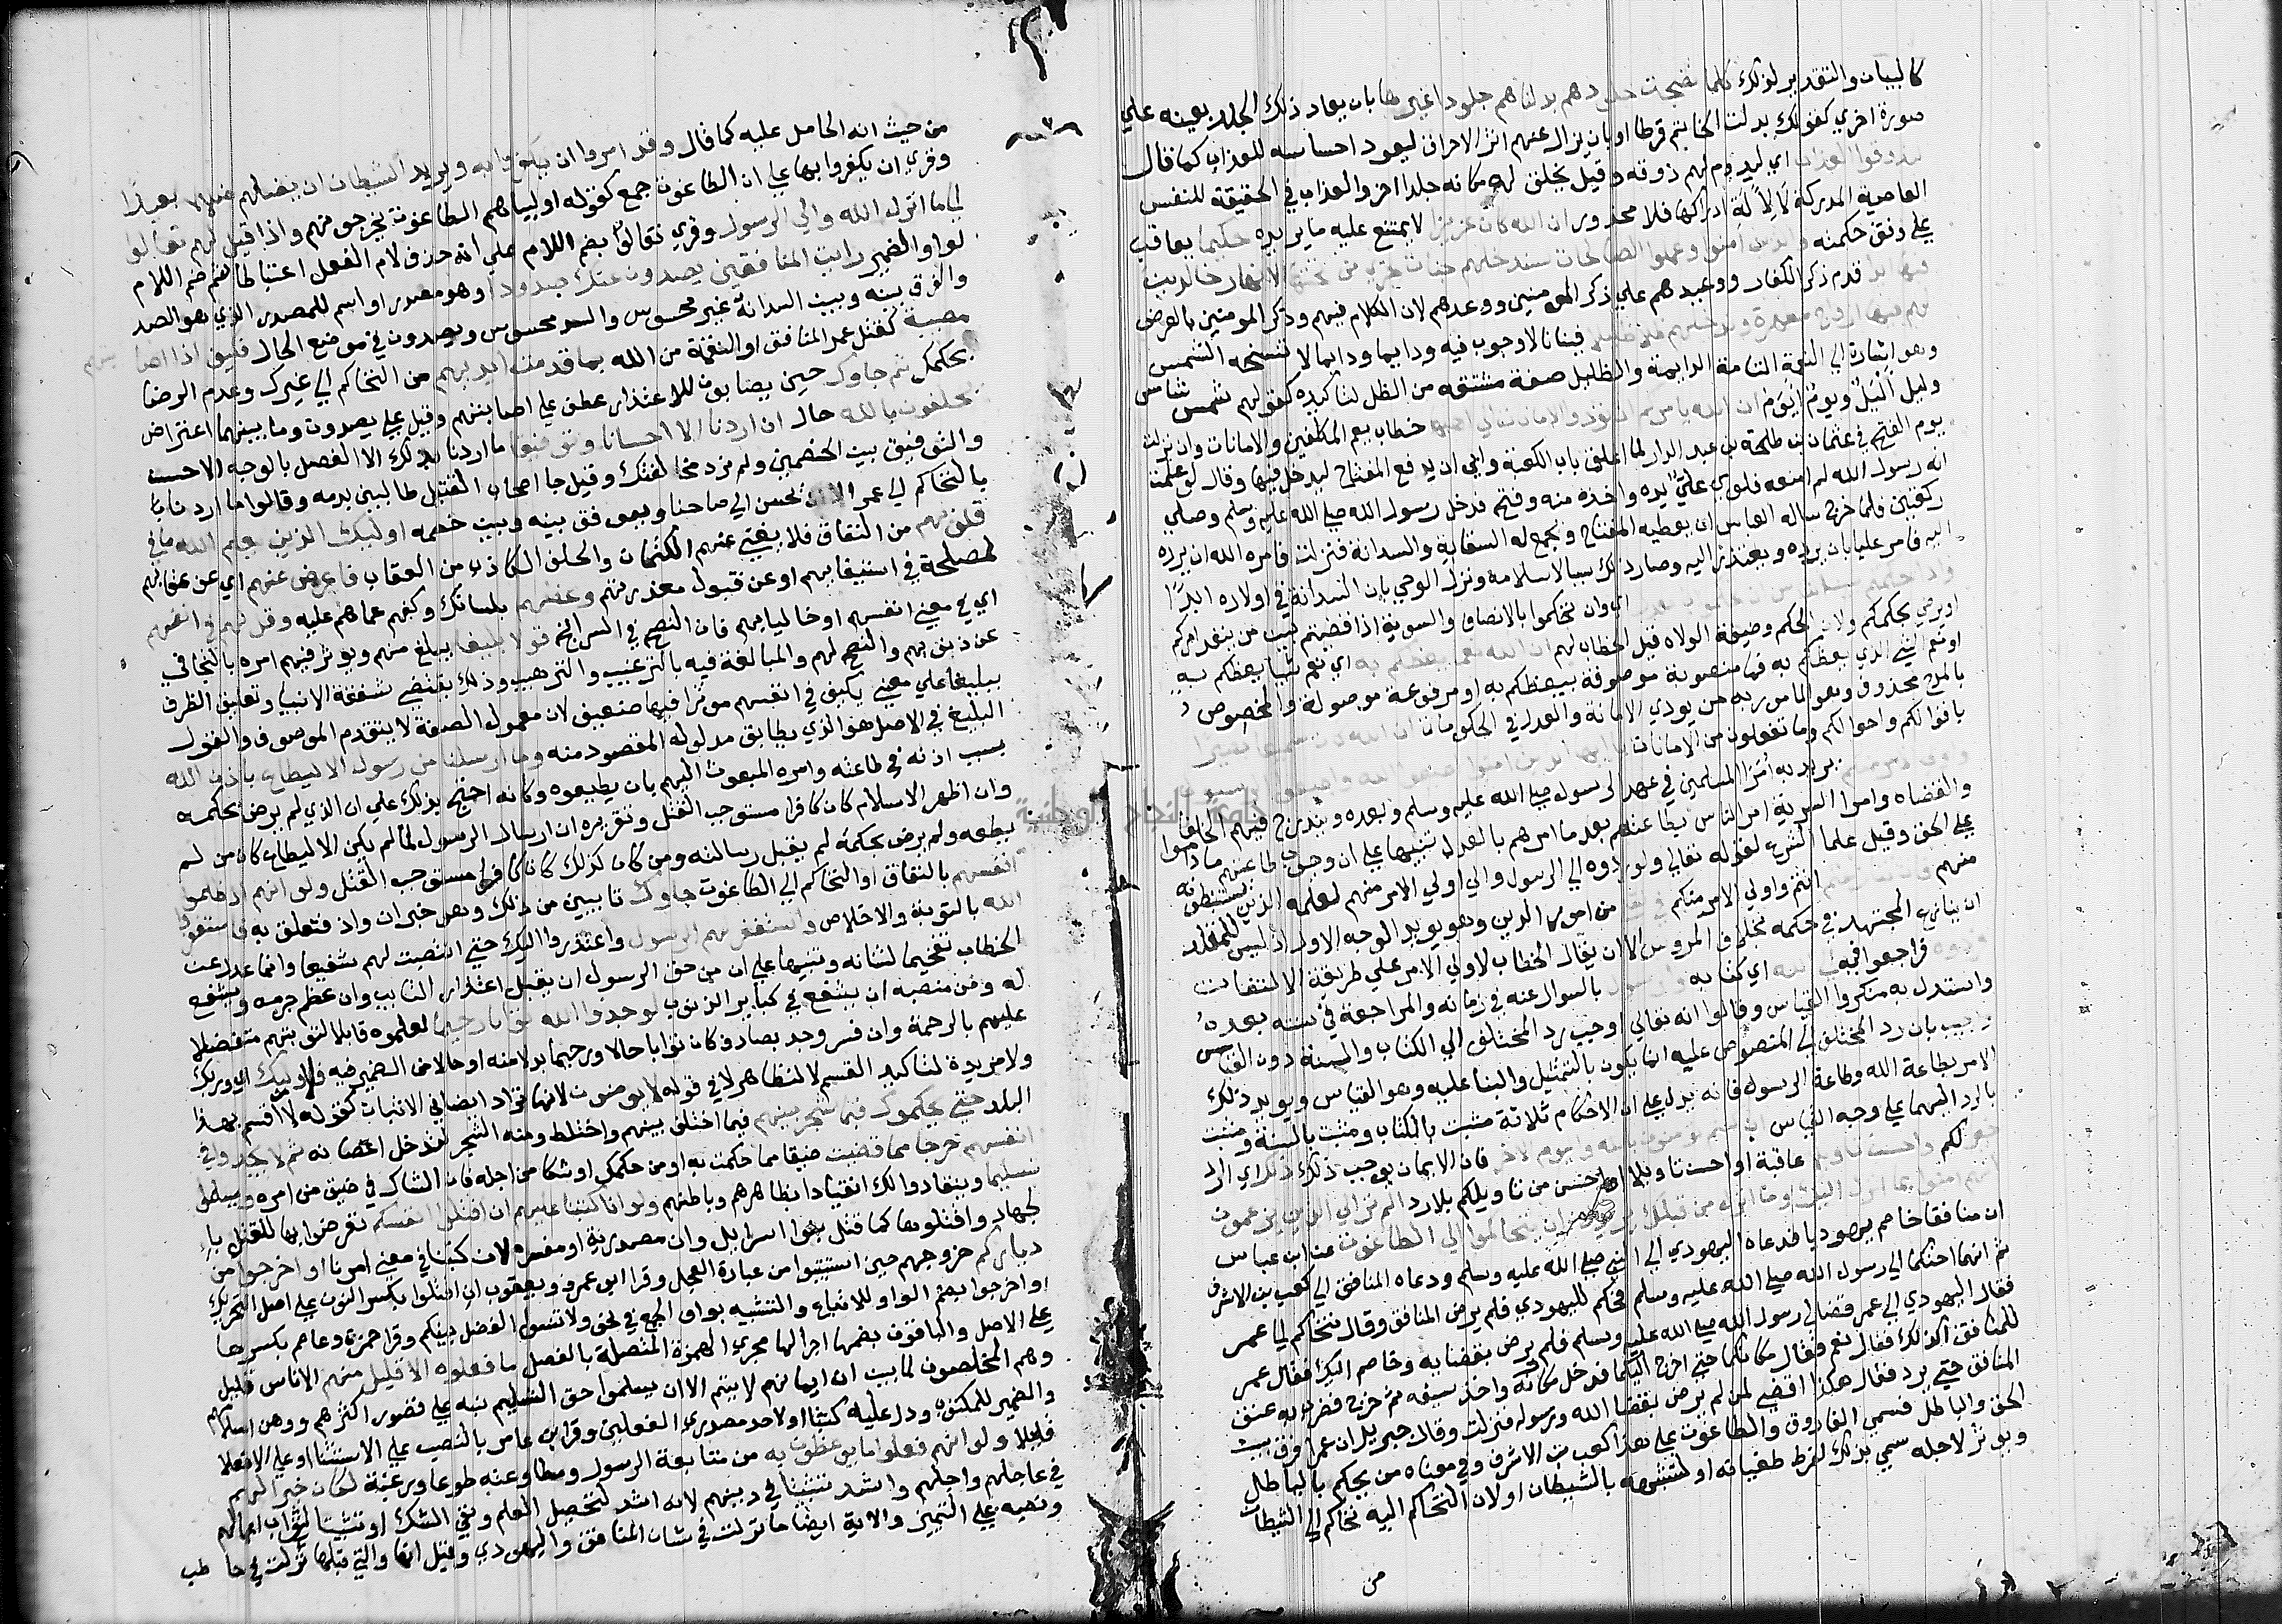 كالبيان والتقدير لذلك كلما نضجت جلودهم بدلناهم جلودا غيرها بان يعاد ذلك الجلد بعينه علي
صورة اخري كقولك بدلت الخاتم قرطا او بان يزال عنهم اثر الاحراق ليعود احساسه للعذاب كما قال
ليذوقوا العذاب اي ليدوم لهم ذوقه وقيل يخلق لهم مكانه جلدا اخر والعذاب في الحقيقة للنفس
العاصية المدركة لا لالة ادراكها فلا محذور ان الله كان عزيزا لا يمتنع عليه ما يريده حكيما يعاقب
علي وفق حكمته والذين امنوا وعملوا الصالحات سندخلهم جنات تجري من تحتها الانهار خالدين
فيها ابدا قدم ذكر الكفار ووعيدهم علي ذكر المومنين ووعدهم لان الكلام فيهم وذكر المومنين بالعرض
لهم فيها ازواج مطهرة وندخلهم ظلا ظليلا فينانا لا وجوب فيه ودايما لا تنسخه الشمس
وهو اشارة الي النعمة التامة الدايمة والظليل صفة مشتقه من الظل لتاكيده كقولهم شمس شامس
وليل اليل ويوم ايوم ان الله يامركم ان تودوا الامانات الي اهلها خطاب يعم المكلفين والامانات وان نزلت
يوم الفتح في عثمان بن طلحة بن عبد الدار لما اغلق باب الكعبة وابي ان يدفع المفتاح ليدخل فيها وقال لو علمت
انه رسول الله لم امنعه فلوي علي يده واخذه منه وفتح فدخل رسول الله صلي الله عليه وسلم وصلي
ركعتين فلما خرج ساله العباس ان يعطيه المفتاح ويجمع له السقاية والسدانة فنزلت فامره الله ان يرده
اليه فامر عليا بان يرده ويعتذر اليه وصار ذلك سببا لاسلامه ونزل الوحي بان السدانة في اولاده ابدا
واذا حكمتم بين الناس ان تحكموا بالعدل اي وان تحكموا بالانصاف والسوية اذا قضيتم بين من ينفذ امركم
او يرضي بحكمكم ولان الحكم وظيفة الولاة قيل الخطاب لهم ان الله نعما يعظكم به اي نعم شيا يعظكم به
او نعم الشي الذي يعظكم به فما منصوبة موصوفة بيعظكم به او مرفوعة موصولة والمخصوص
بالمدح محذوف وهو المامور به من يودي الامانة والعدل في الحكومات ان الله كان سميعا بصيرا
باقوالكم واحوالكم وما تفعلون من الامانات يا ايها الذين امنوا اطيعوا الله واطيعوا الرسول
واولي الامر منكم يريد به امرا المسلمين في عهد الرسول صلي الله عليه وسلم وبعده ويندرج فيهم الخلفا
والقضاه وامرا السرية امر الناس بطاعتهم بعد ما امرهم بالعدل تنبيها علي ان وجوب طاعتهم ما داموا
علي الحق وقيل علما الشرع لقوله تعالي ولو ردوه الي الرسول والي اولي الامر منهم لعلمه الذين يستنبطونه
منهم فان تنازعتم انتم واولي الامر منكم في شي من امور الدين وهو يويد الوجه الاول اذ ليس للمقلد
ان ينازع المجتهد في حكمه بخلاف المرووس الا ان يقال الخطاب لاولي الامر علي طريقة الالتفات
فردوه فراجعوا فيه الي الله اي كتابه والرسول بالسوال عنه في زمانه والمراجعة في سنته بعده
واستدل به منكروا القياس وقالوا انه تعالي اوجب رد المختلف الي الكتاب والسنة دون القياس
واجيب بان رد المختلف الي المنصوص عليه انما يكون بالتمثيل والبنا عليه وهو القياس ويويد ذلك
الامر بطاعة الله وطاعة الرسول فانه يدل علي ان الاحكام ثلاثة مثبت بالكتاب ومثبت بالسنة ومثبت
بالرد اليهما علي وجه القياس ان كنتم تومنون بالله واليوم الاخر فان الايمان يوجب ذلك ذلك اي الرد
خير لكم واحسن تاويلا عاقبة او احسن تاويلا احسن من تاويلكم بلا رد الم تر الي الذين يزعمون
انهم امنوا بما انزل اليك وما انزل من قبلك يريدون ان يتحاكموا الي الطاغوت عن ابن عباس
ان منافقا خاصم يهوديا فدعاه اليهودي الي النبي صلي الله عليه وسلم ودعاه المنافق الي كعب بن الاشرف
ثم انهما احتكما الي رسول الله صلي الله عليه وسلم فحكم لليهودي فلم يرض المنافق وقال نتحاكم الي عمر
فقال اليهودي الي عمر قضا لي رسول الله صلي الله عليه وسلم فلم يرض بقضايه وخاصم اليك فقال عمر
للمنافق اكذلك فقال نعم فقال مكانكما حتي اخرج اليكما فدخل مكانه واخذ سيفه ثم خرج فضرب به عنق
المنافق حتي برد فقال هكذا اقضي لمن لم يرض بقضا الله ورسوله فنزلت وقال جبريل ان عمر فرق بين
الحق والباطل فسمي الفاروق والطاغوت علي هذا كعب بن الاشرف وفي معناه من يحكم بالباطل
ويوثر لاجله سمي بذلك لفرط طغيانه او لتشبهه بالشيطان او لان التحاكم اليه تحاكم الي الشيطان
من
من حيث انه الحامل عليه كما قال وقد امروا ان يكفروا به ويريد الشيطان ان يضلهم ضلالا بعيدا
وقري ان يكفروا بها علي ان الطاغوت جمع كقوله اولياهم الطاغوت يخرجونهم واذا قيل لهم تعالوا
الي ما انزل الله والي الرسول وقري تعالوا بضم اللام علي انه حذف لام الفعل اعتباطا ثم ضم اللام
لواو الضمير رايت المنافقين يصدون عنك صدودا وهو مصدر او اسم للمصدر الذي هو الصد
والفرق بينه وبين السد انه غير محسوس والسد محسوس ويصدون في موضع الحال فكيف اذا اصابتهم
مصيبة كقتل عمر المنافق او النقمة من الله بما قدمت ايديهم من التحاكم الي غيرك وعدم الرضا
بحكمك ثم جاوك حين يصابون للاعتذار عطف علي اصابتهم وقيل علي يصدون وما بينهما اعتراض
يحلفون بالله حال ان اردنا الا احسانا وتوفيقا ما اردنا بذلك الا الفصل بالوجه الاحسن
والتوفيق بين الخصمين ولم نرد مخالفتك وقيل جا اصحاب القتيل طالبين بدمه وقالوا ما اردنا
بالتحاكم الي عمر الا ان يحسن الي صاحبنا ويوفق بينه وبين خصمه اوليك الذين يعلم الله ما في
قلوبهم من النفاق فلا يغني عنهم الكتمان والحلف الكاذب من العقاب فاعرض عنهم اي عن عقابهم
لمصلحة في استبقايهم او عن قبول معذرتهم وعظهم بلسانك وكفهم عما هم عليه وقل لهم في انفسهم
اي في معني انفسهم او خاليا بهم فان النصح في السر انجع قولا بليغا يبلغ منهم ويوثر فيهم امره بالتجافي
عن ذنوبهم والنصح لهم والمبالغة فيه بالترغيب والترهيب وذلك يقتضي شفقة الانبيا وتعليق الظرف
ببليغا علي معني يكيف في انفسهم موثرا فيهما ضعيف لان معمول الصفة لا يتقدم الموصوف والقول
البليغ في الاصل هو الذي يطابق مدلوله المقصود منه وما ارسلنا من رسول الا ليطاع باذن الله
بسبب اذنه في طاعته وامره المبعوث اليهم بان يطيعوه وكانه احتج بذلك علي ان الذي لم يرض بحكمه
وان اظهر الاسلام كان كافرا مستوجب القتل وتقريره ان ارسال الرسول لما لم يكن الا ليطاع كان من لم
يطعه ولم يرض بحكمه لم يقبل رسالته ومن كان كذلك كان كافرا مستوجب القتل ولو انهم اذ ظلموا
انفسهم بالنفاق او التحاكم الي الطاغوت جاوك تايبين من ذلك وهو خبر ان واذ متعلق به فاستغفروا
الله بالتوبة والاخلاص واستغفر لهم الرسول واعتذروا اليك حتي انتصبت لهم شفيعا وانما عدل عن
الخطاب تفخيما لشانه وتنبيها علي ان من حق الرسول ان يقبل اعتذار التايب وان عظم جرمه ويشفع
له ومن منصبه ان يشفع في كباير الذنوب لوجدوا الله توابا رحيما لعلموه قابلا لتوبتهم متفضلا
عليهم بالرحمة وان فسر وجد بصادف كان توابا حالا ورحيما بدلا منه او حالا من الضمير فيه فلا وربك اي وربك
ولا مزيدة لتاكيد القسم لا لتظاهر لا في قوله لا يومنون لانها تزاد ايضا في الاثبات كقوله لا اقسم بهذا
البلد حتي يحكموك فيما شجر بينهم فيما اختلف بينهم واختلط ومنه الشجر لتداخل اغصانه ثم لا يجدوا في
انفسهم حرجا مما قضيت ضيقا مما حكمت به او من حكمك او شكا من اجله فان الشاك في ضيق من امره ويسلموا
تسليما وينقادوا لك انقيادا بظاهرهم وباطنهم ولو انا كتبنا عليهم ان اقتلوا انفسكم تعرضوا بها للقتل بالـ
ـجهاد او اقتلوها كما قتل بنوا اسرايل وان مصدرية او مفسره لان كتبنا في معني امرنا او اخرجوا من
دياركم خروجهم حين استتيبوا من عبادة العجل وقرا ابو عمرو ويعقوب ان اقتلوا بكسر النون علي اصل التحريك
او اخرجوا بضم الواو للاتباع والتشبيه بواو الجمع في نحو ولا تنسوا الفضل بينكم وقرا حمزة وعاصم بكسرها
علي الاصل والباقون بضمها اجرا لها مجري الهمزة المتصلة بالفعل ما فعلوه الا قليل منهم الا ناس قليل
وهم المخلصون لما بين ان ايمانهم لا يتم الا ان يسلموا حق التسليم نبه علي قصور اكثرهم ووهن اسلامهم
والضمير للمكتوب ودل عليه كتبنا او لاحد مصدري الفعلين وقرا ابن عامر بالنصب علي الاستثنا او علي الا فعلا
قليلا ولو انهم فعلوا ما يوعظون به من متابعة الرسول ومطاوعته طوعا ورغبة لكان خيرا لهم
في عاجلهم واجلهم واشد تثبيتا في دينهم لانه اشد لتحصيل العلم ونفي الشك او تثبيتا لثواب اعمالهم
ونصبه علي التمييز والاية ايضا ما نزلت في شان المنافق واليهودي وقيل انها والتي قبلها نزلت في حاطب
جامعة النجاح الوطنية